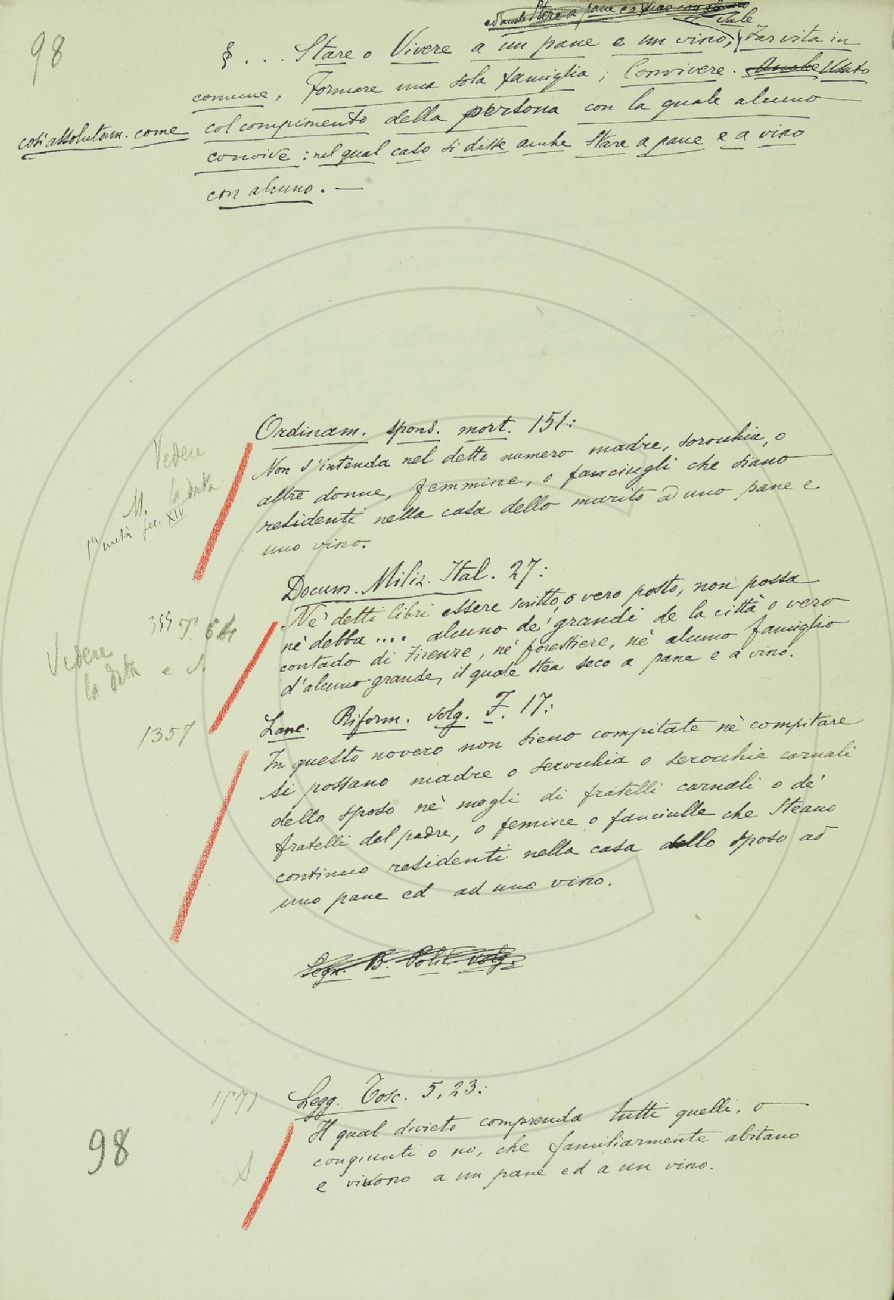 98
ed anche Stare a pane e a vino con alcuno
vale
§ . . . Stare o Vivere a un pane e un vino, Far vita in
comune, Formare una sola famiglia; Convivere. Anche Usato
così assolutam. come col compimento della persona con la quale alcuno
convive: nel qual caso si disse anche Stare a pane e a vino
con alcuno. —
Ordinam. spons. mort. 151:
Non s'intenda nel detto numero madre, sorocchia, o
altre donne, femmine, o fanciugli che siano
residenti nella casa dello marito ad uno pane e
uno vino.
Vedere
la data
M.
1ª metà sec. XIV
Docum. Miliz. Ital. 27:
Ne' detti libri essere scritto, o vero posto, non possa
nè debba .... alcuno de' grandi de la città o vero
contado di Firenze, nè forestiere, nè alcuno famiglio
d'alcuno grande, il quale stea seco a pane e a vino.
Vedere
la data
1357
Lanc. Riform. volg. F. 17:
In questo novero non sieno compitate nè compitare
si possano madre o serocchia o serocchie carnali
dello sposo nè mogli di fratelli carnali o de'
fratelli del padre, o femine o fanciulle che steano
continuo residenti nella casa dello sposo ad
uno pane ed ad uno vino.
Segn. B. Polit. volg.
1571
Legg. Tosc. 5, 23:
Il qual divieto comprenda tutti quelli, o
congiunti o no, che familiarmente abitano
e vivono a un pane ed a un vino.
98